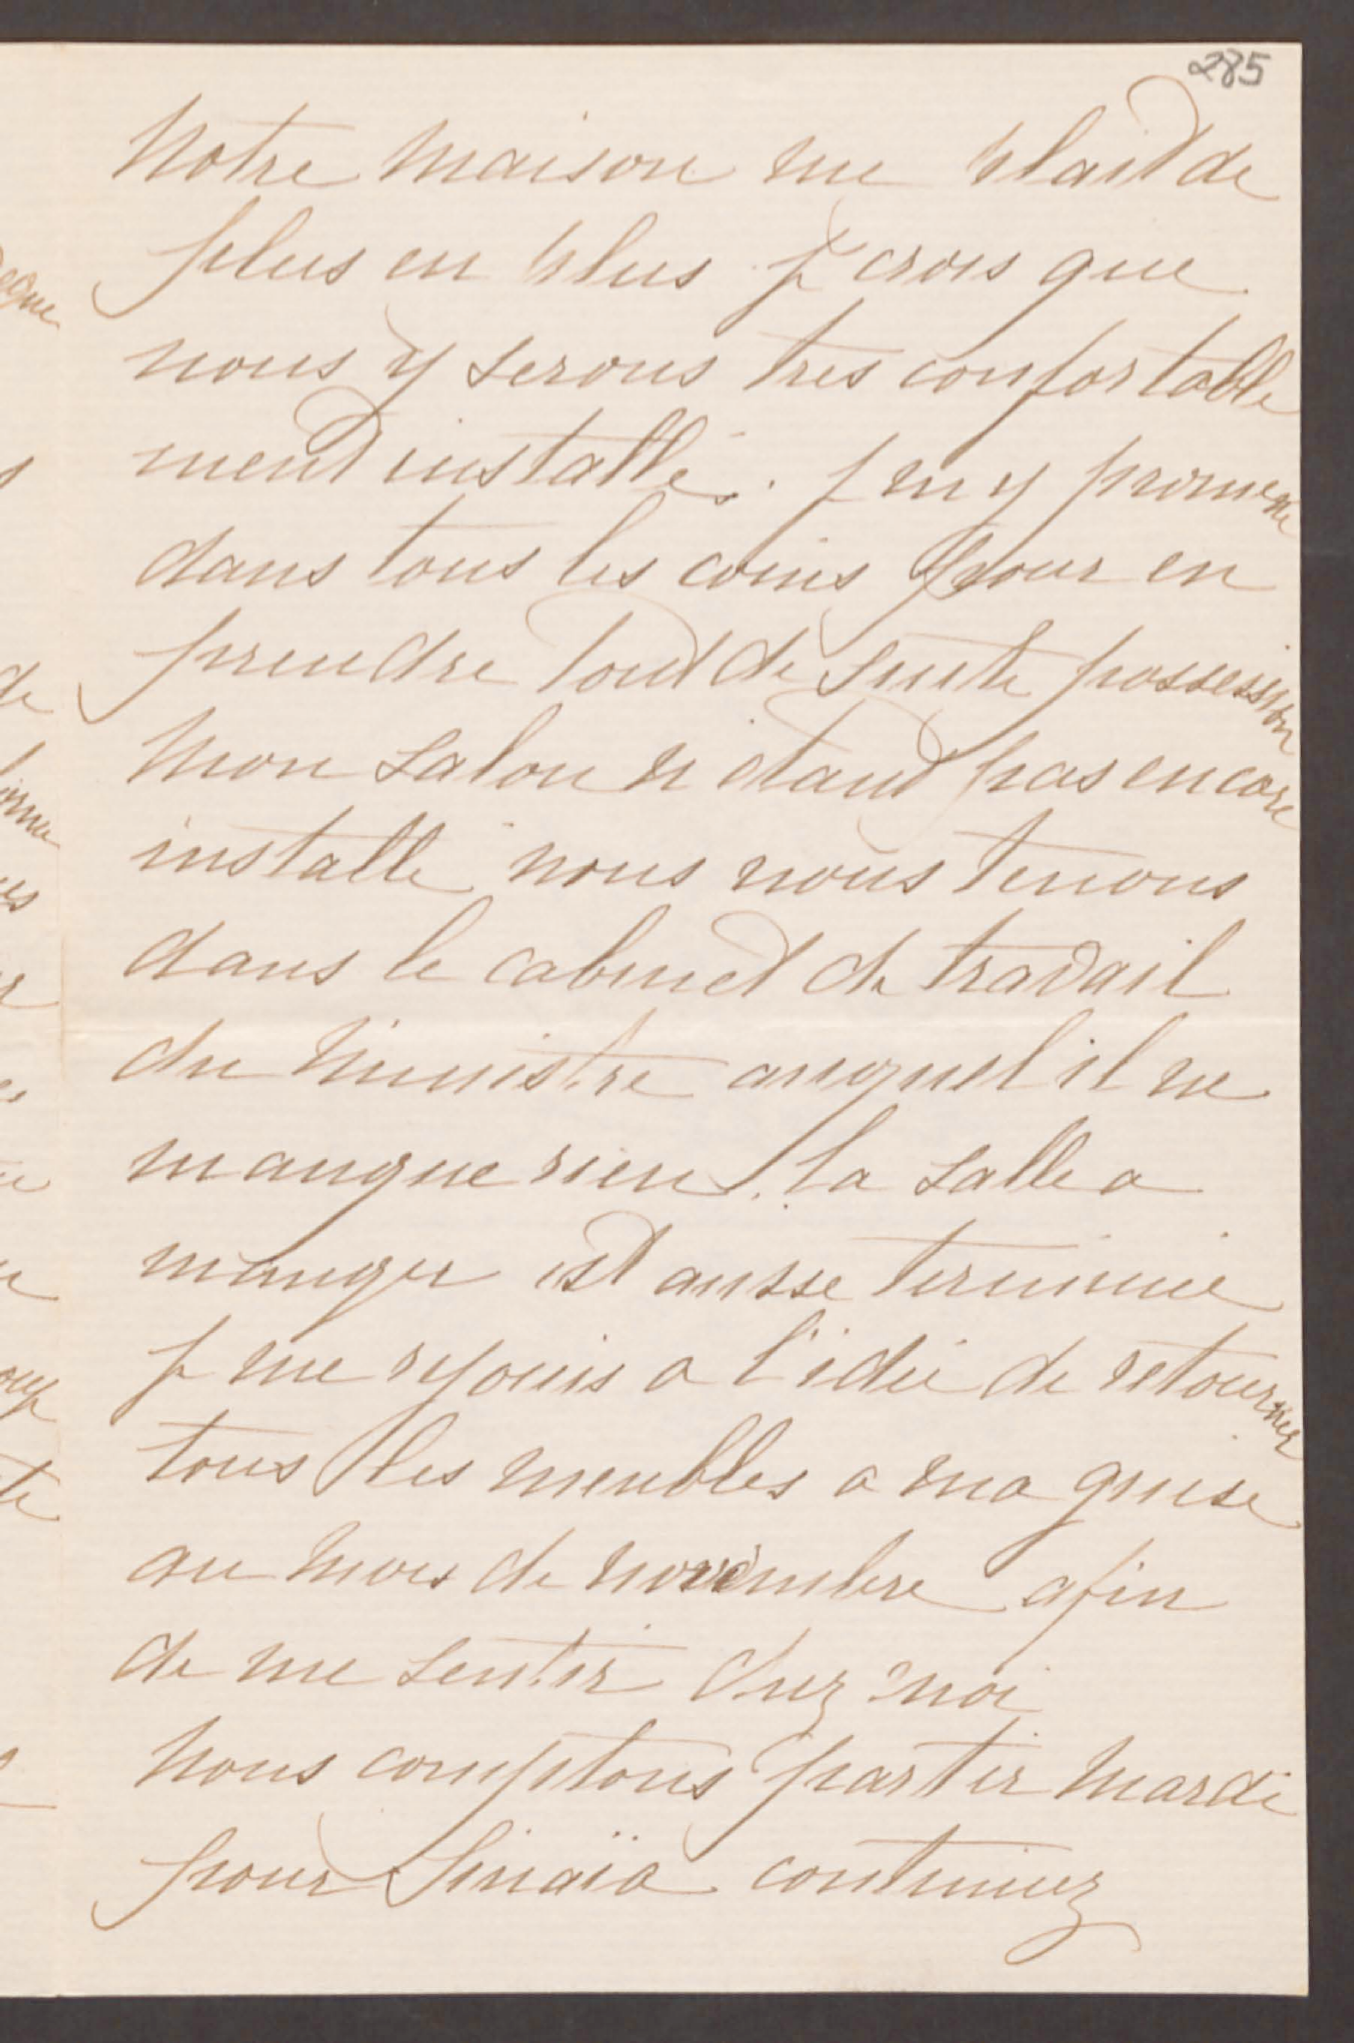 285
Notre maison me plait de
plus en plus je crois que
nous y serons tres confortable
ment installés. je m y promene
dans tous les coins pour en
prendre tout de suite possession
Mon salon n etant pas encore
installé nous nous tenons
dans le cabinet de travail
du Ministre auquel il ne
manque rien. la salle a
manger est ausse terminée
je me rejouis a l'idée de retourner
tous les meubles a ma guise
au mois de novembre afin
de me sentir chez moi
Nous comptons partir Mardi
pour Sinaïa continuez